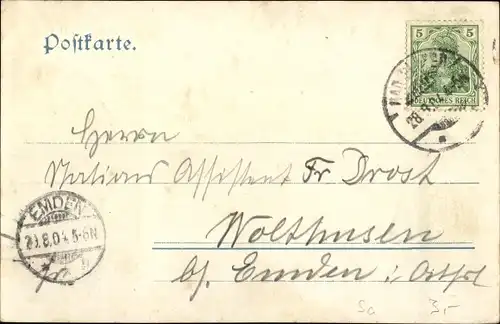 Postkarte.
5
DEUTSCHES REICH
Herrn
Stations Assistent Fr Drost
Wolthusen
b/ Emden i. Ostfrl
EMDEN
29.8.04.5-6N
50 3,-